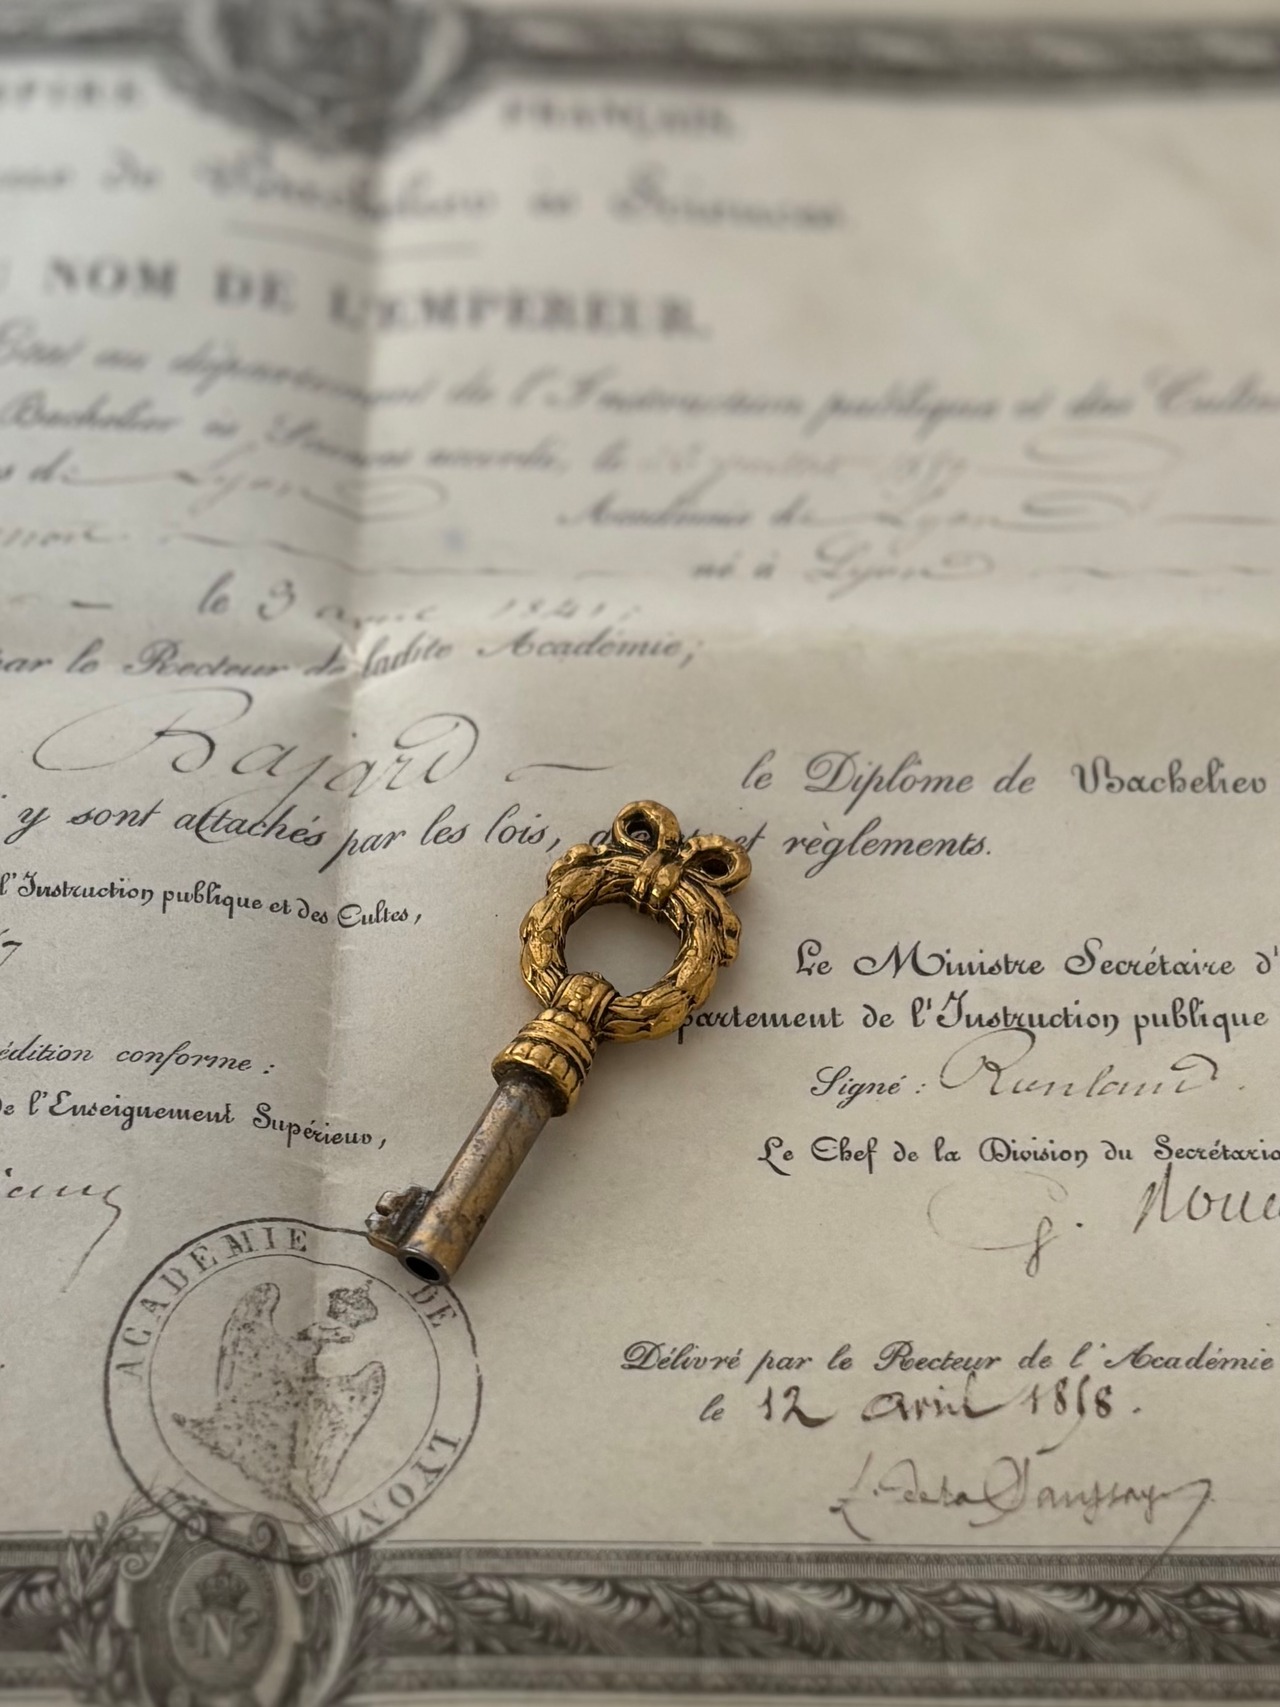 FRANÇAIS.
de Baccalauréat ès Sciences.
NOM DE L'EMPEREUR.
État au département de l'Instruction publique et des Cultes
Bachelier ès Sciences accordé, le juillet 1857
de Lyon Académie de Lyon
né à Lyon
le 3 avril 1841;
par le Recteur de ladite Académie;
Bajard le Diplôme de Bachelier
y sont attachés par les lois, et règlements.
l'Instruction publique et des Cultes,
Le Ministre Secrétaire d'
partement de l'Instruction publique
Signé : Rouland.
Le Chef de la Division du Secrétaria
G.
édition conforme :
de l'Enseignement Supérieur,
ACADEMIE DE LYON
Délivré par le Recteur de l'Académie
le 12 avril 1858.
N